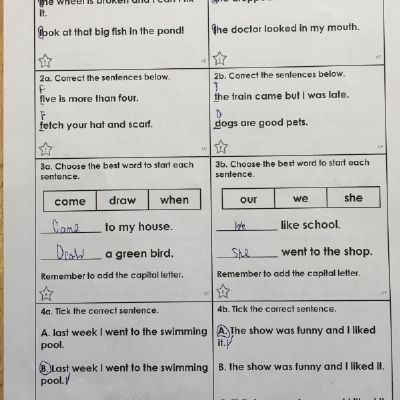 the wheel is broken and I can't fix
it.
look at that big fish in the pond!
the doctor looked in my mouth.
2a. Correct the sentences below.
F
five is more than four.
F
fetch your hat and scarf.
2b. Correct the sentences below.
T
the train came but I was late.
D
dogs are good pets.
3a. Choose the best word to start each
sentence.
come draw when
Come to my house.
Draw a green bird.
Remember to add the capital letter.
3b. Choose the best word to start each
sentence.
our we she
We like school.
She went to the shop.
Remember to add the capital letter.
4a. Tick the correct sentence.
A. last week I went to the swimming
pool.
B. Last week I went to the swimming
pool.
4b. Tick the correct sentence.
A. The show was funny and I liked
it.
B. the show was funny and I liked it.